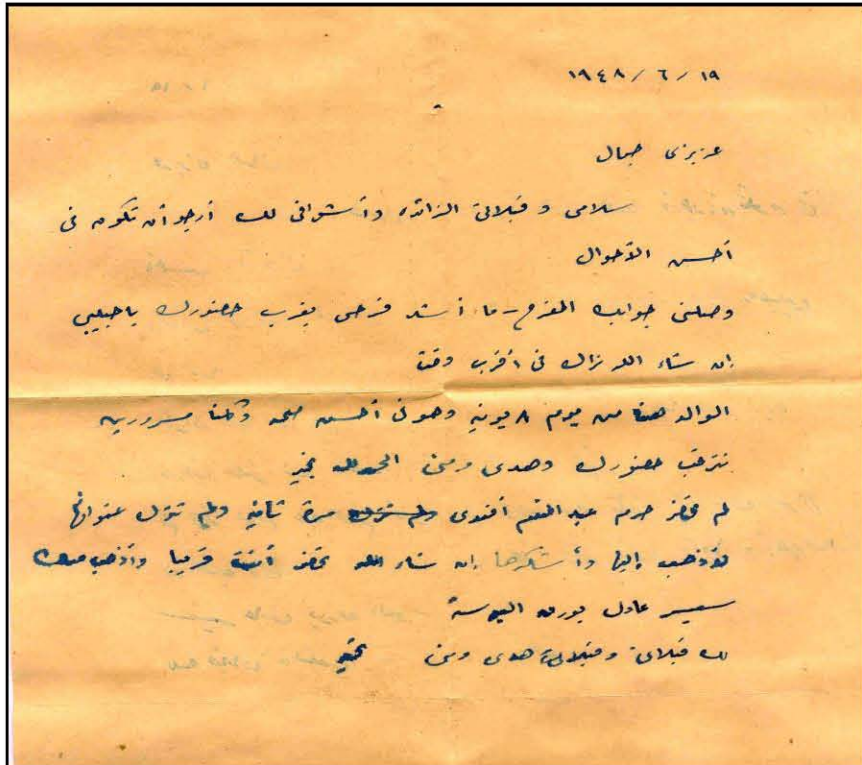 ١٩ / ٦ / ١٩٤٨
عزيزى جمال
سلامى و قبلاتى الزائده وأشواقى لك أرجو أن تكون فى
أحسن الأحوال
وصلنى جوابك المفرح - ما أشد فرحى بقرب حضورك يا حبيبى
إن شاء الله نراك فى أقرب وقت
الوالد هنا من يوم ٨ يونيه وهو فى أحسن صحه وكلنا مسرورين
نترقب حضورك وهدى ومنى الحمد لله بخير
لم تحضر حرم عبد المنعم أفندى مرة ثانية ولم تترك عنوانها
لأذهب إليها وأشكرها إن شاء الله تحضر أنت قريبا وأذهب معك
عادل بورق البوسته
لك قبلاتى وقبلات هدى ومنى تحيه